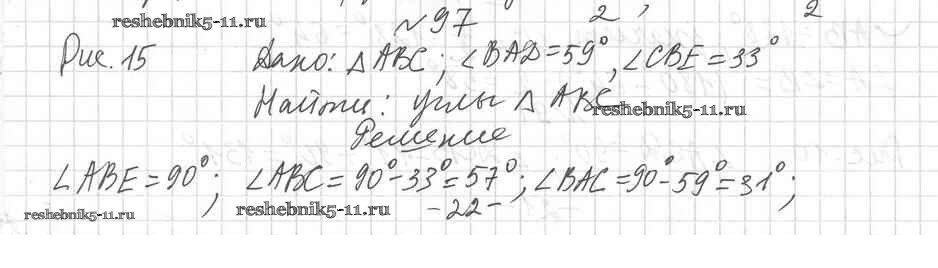 reshebnik5-11.ru
№97 2 , 2
Рис. 15 Дано: △ABC; ∠BAD=59°, ∠CBE=33°
Найти: углы △ABC
reshebnik5-11.ru
Решение
∠ABE=90°; ∠ABC=90°-33°=57°; ∠BAC=90°-59°=31°;
reshebnik5-11.ru reshebnik5-11.ru -22-